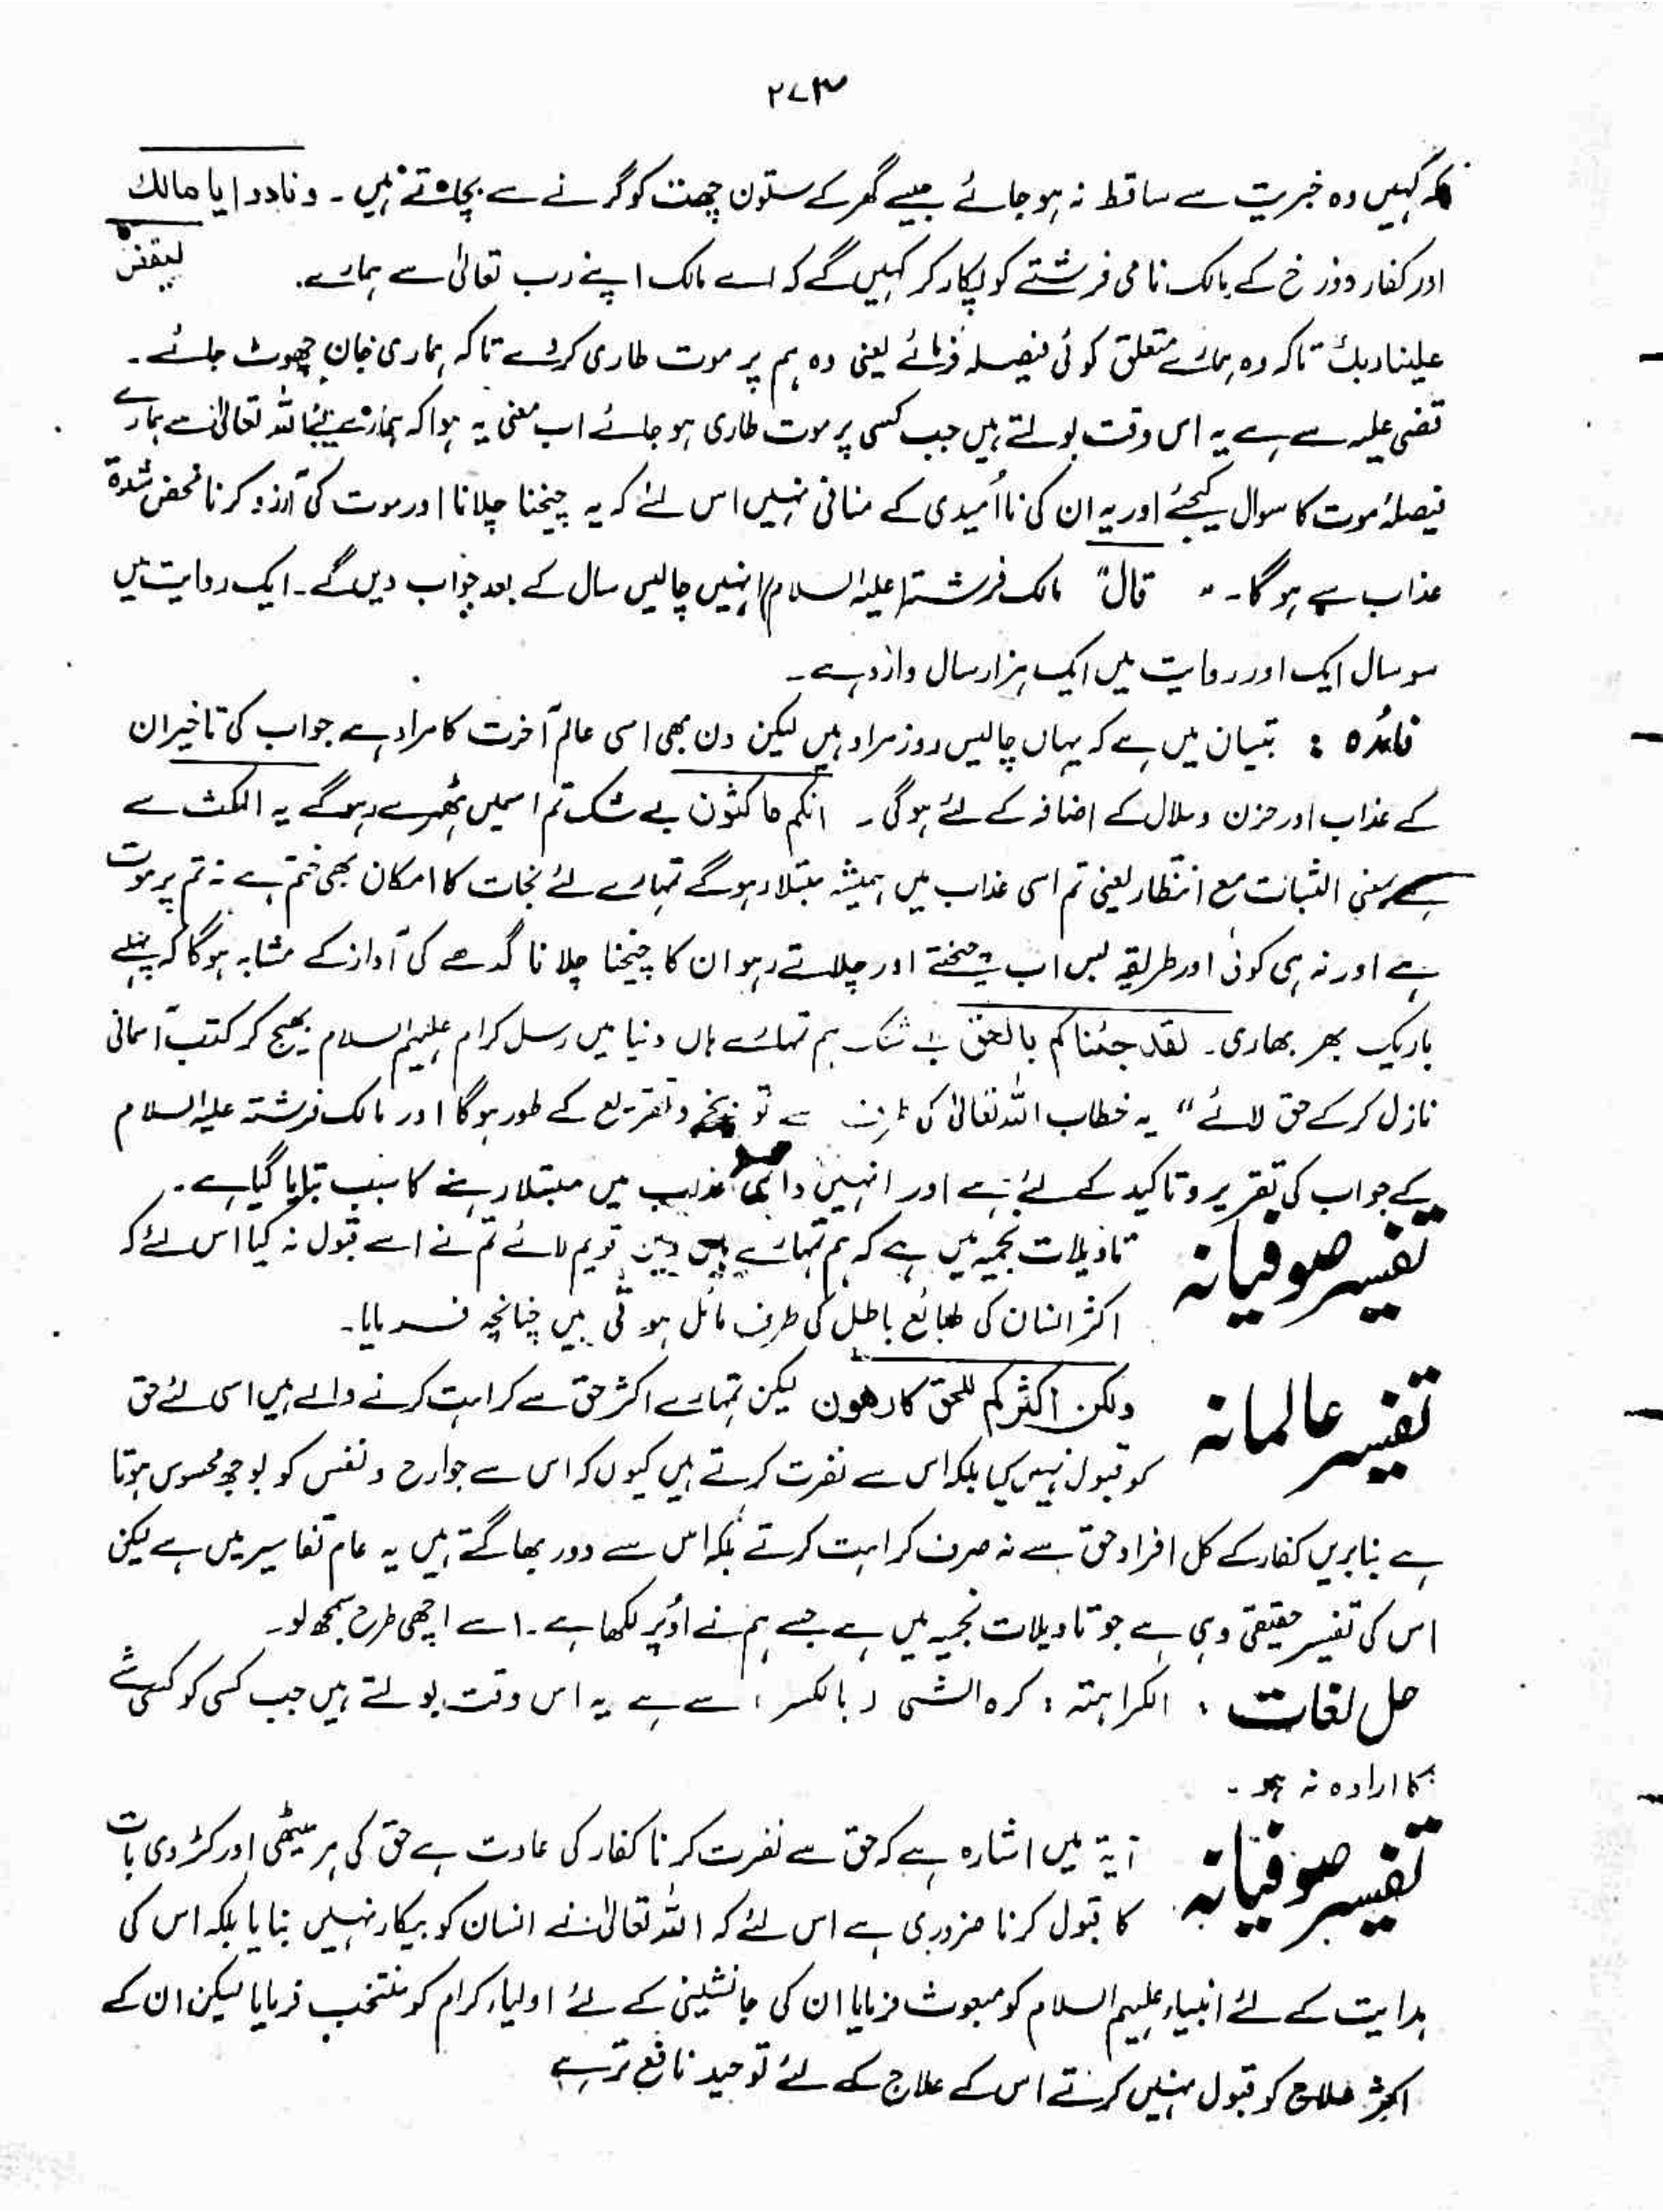 ۲۷۳
کہ کہیں وہ خبریت سے ساقط نہ ہو جائے جیسے گھر کے ستون چھت کو گرنے سے بچاتے ہیں ۔ ونادوا یا مالک
لیقض
اور کفار دوزخ کے مالک نامی فرشتے کو پکار کر کہیں گے کہ اے مالک اپنے رب تعالیٰ سے ہمارے.
علینا ربک تاکہ وہ ہمارے متعلق کوئی فیصلہ فرمائے یعنی وہ ہم پر موت طاری کردے تاکہ ہماری جان چھوٹ جائے ۔
قضی علیہ سے ہے یہ اس وقت بولتے ہیں جب کسی پر موت طاری ہو جائے اب معنی یہ ہوا کہ ہمارے لیے اللہ تعالیٰ سے ہمارے
فیصلۂ موت کا سوال کیجئے اور یہ ان کی نا اُمیدی کے منافی نہیں اس لئے کہ یہ چیخنا چلانا اور موت کی آرزو کرنا محض شدۃ
عذاب سے ہو گا ۔ " قال " مالک فرشتہ (علیہ السلام) انہیں چالیس سال کے بعد جواب دیں گے ۔ ایک روایت میں
سو سال ایک اور روایت میں ایک ہزار سال وارد ہے ۔
فائدہ : تبیان میں ہے کہ یہاں چالیس روز مراد ہیں لیکن دن بھی اسی عالم آخرت کا مراد ہے جواب کی تاخیر ان
کے عذاب اور حزن و ملال کے اضافہ کے لئے ہو گی ۔ انکم ماکثون بے شک تم اسمیں ٹھہرے رہو گے یہ المکث سے
ہے بمعنی الثبات مع انتظار یعنی تم اسی عذاب میں ہمیشہ مبتلا رہو گے تمہارے لئے نجات کا امکان بھی ختم ہے نہ تم پر موت
ہے اور نہ ہی کوئی اور طریقہ بس اب چیختے اور چلاتے رہو ان کا چیخنا چلانا گدھے کی آواز کے مشابہ ہو گا کہ پہلے
باریک پھر بھاری ۔ لقد جئناکم بالحق بے شک ہم تمہارے ہاں دنیا میں رسل کرام علیہم السلام بھیج کر کتب آسمانی
نازل کر کے حق لائے " یہ خطاب اللہ تعالیٰ کی طرف سے تو بیخ و تقریع کے طور ہو گا اور مالک فرشتہ علیہ السلام
کے جواب کی تقریر و تاکید کے لئے ہے اور انہیں دائمی عذاب میں مبتلا رہنے کا سبب بتایا گیا ہے ۔
تفسیر صوفیانہ تاویلات نجمیہ میں ہے کہ ہم تمہارے پاس دین قویم لائے تم نے اسے قبول نہ کیا اس لئے کہ
اکثر انسان کی طبائع باطل کی طرف مائل ہوتی ہیں چنانچہ فرمایا ۔
تفسیر عالمانہ ولکن اکثرکم للحق کارھون لیکن تمہارے اکثر حق سے کراہت کرنے والے ہیں اسی لئے حق
کو قبول نہیں کیا بلکہ اس سے نفرت کرتے ہیں کیوں کہ اس سے جوارح و نفس کو بوجھ محسوس ہوتا
ہے بنابریں کفار کے کل افراد حق سے نہ صرف کراہت کرتے بلکہ اس سے دور بھاگتے ہیں یہ عام تفاسیر میں ہے لیکن
اس کی تفسیر حقیقی وہی ہے جو تاویلات نجمیہ میں ہے جسے ہم نے اوُپر لکھا ہے ۔ اسے اچھی طرح سمجھ لو ۔
حل لغات : الکراہتہ : کرہ الشی ( بالکسر ) سے ہے یہ اس وقت بولتے ہیں جب کسی کو کسی شے
کا ارادہ نہ ہو ۔
تفسیر صوفیانہ آیۃ میں اشارہ ہے کہ حق سے نفرت کرنا کفار کی عادت ہے حق کی ہر میٹھی اور کڑوی بات
کا قبول کرنا ضروری ہے اس لئے کہ اللہ تعالیٰ نے انسان کو بیکار نہیں بنایا بلکہ اس کی
ہدایت کے لئے انبیاء علیہم السلام کو مبعوث فرمایا ان کی جانشینی کے لئے اولیاء کرام کو منتخب فرمایا لیکن ان کے
اکثر علاج کو قبول نہیں کرتے اس کے علاج کے لئے توحید نافع تر ہے